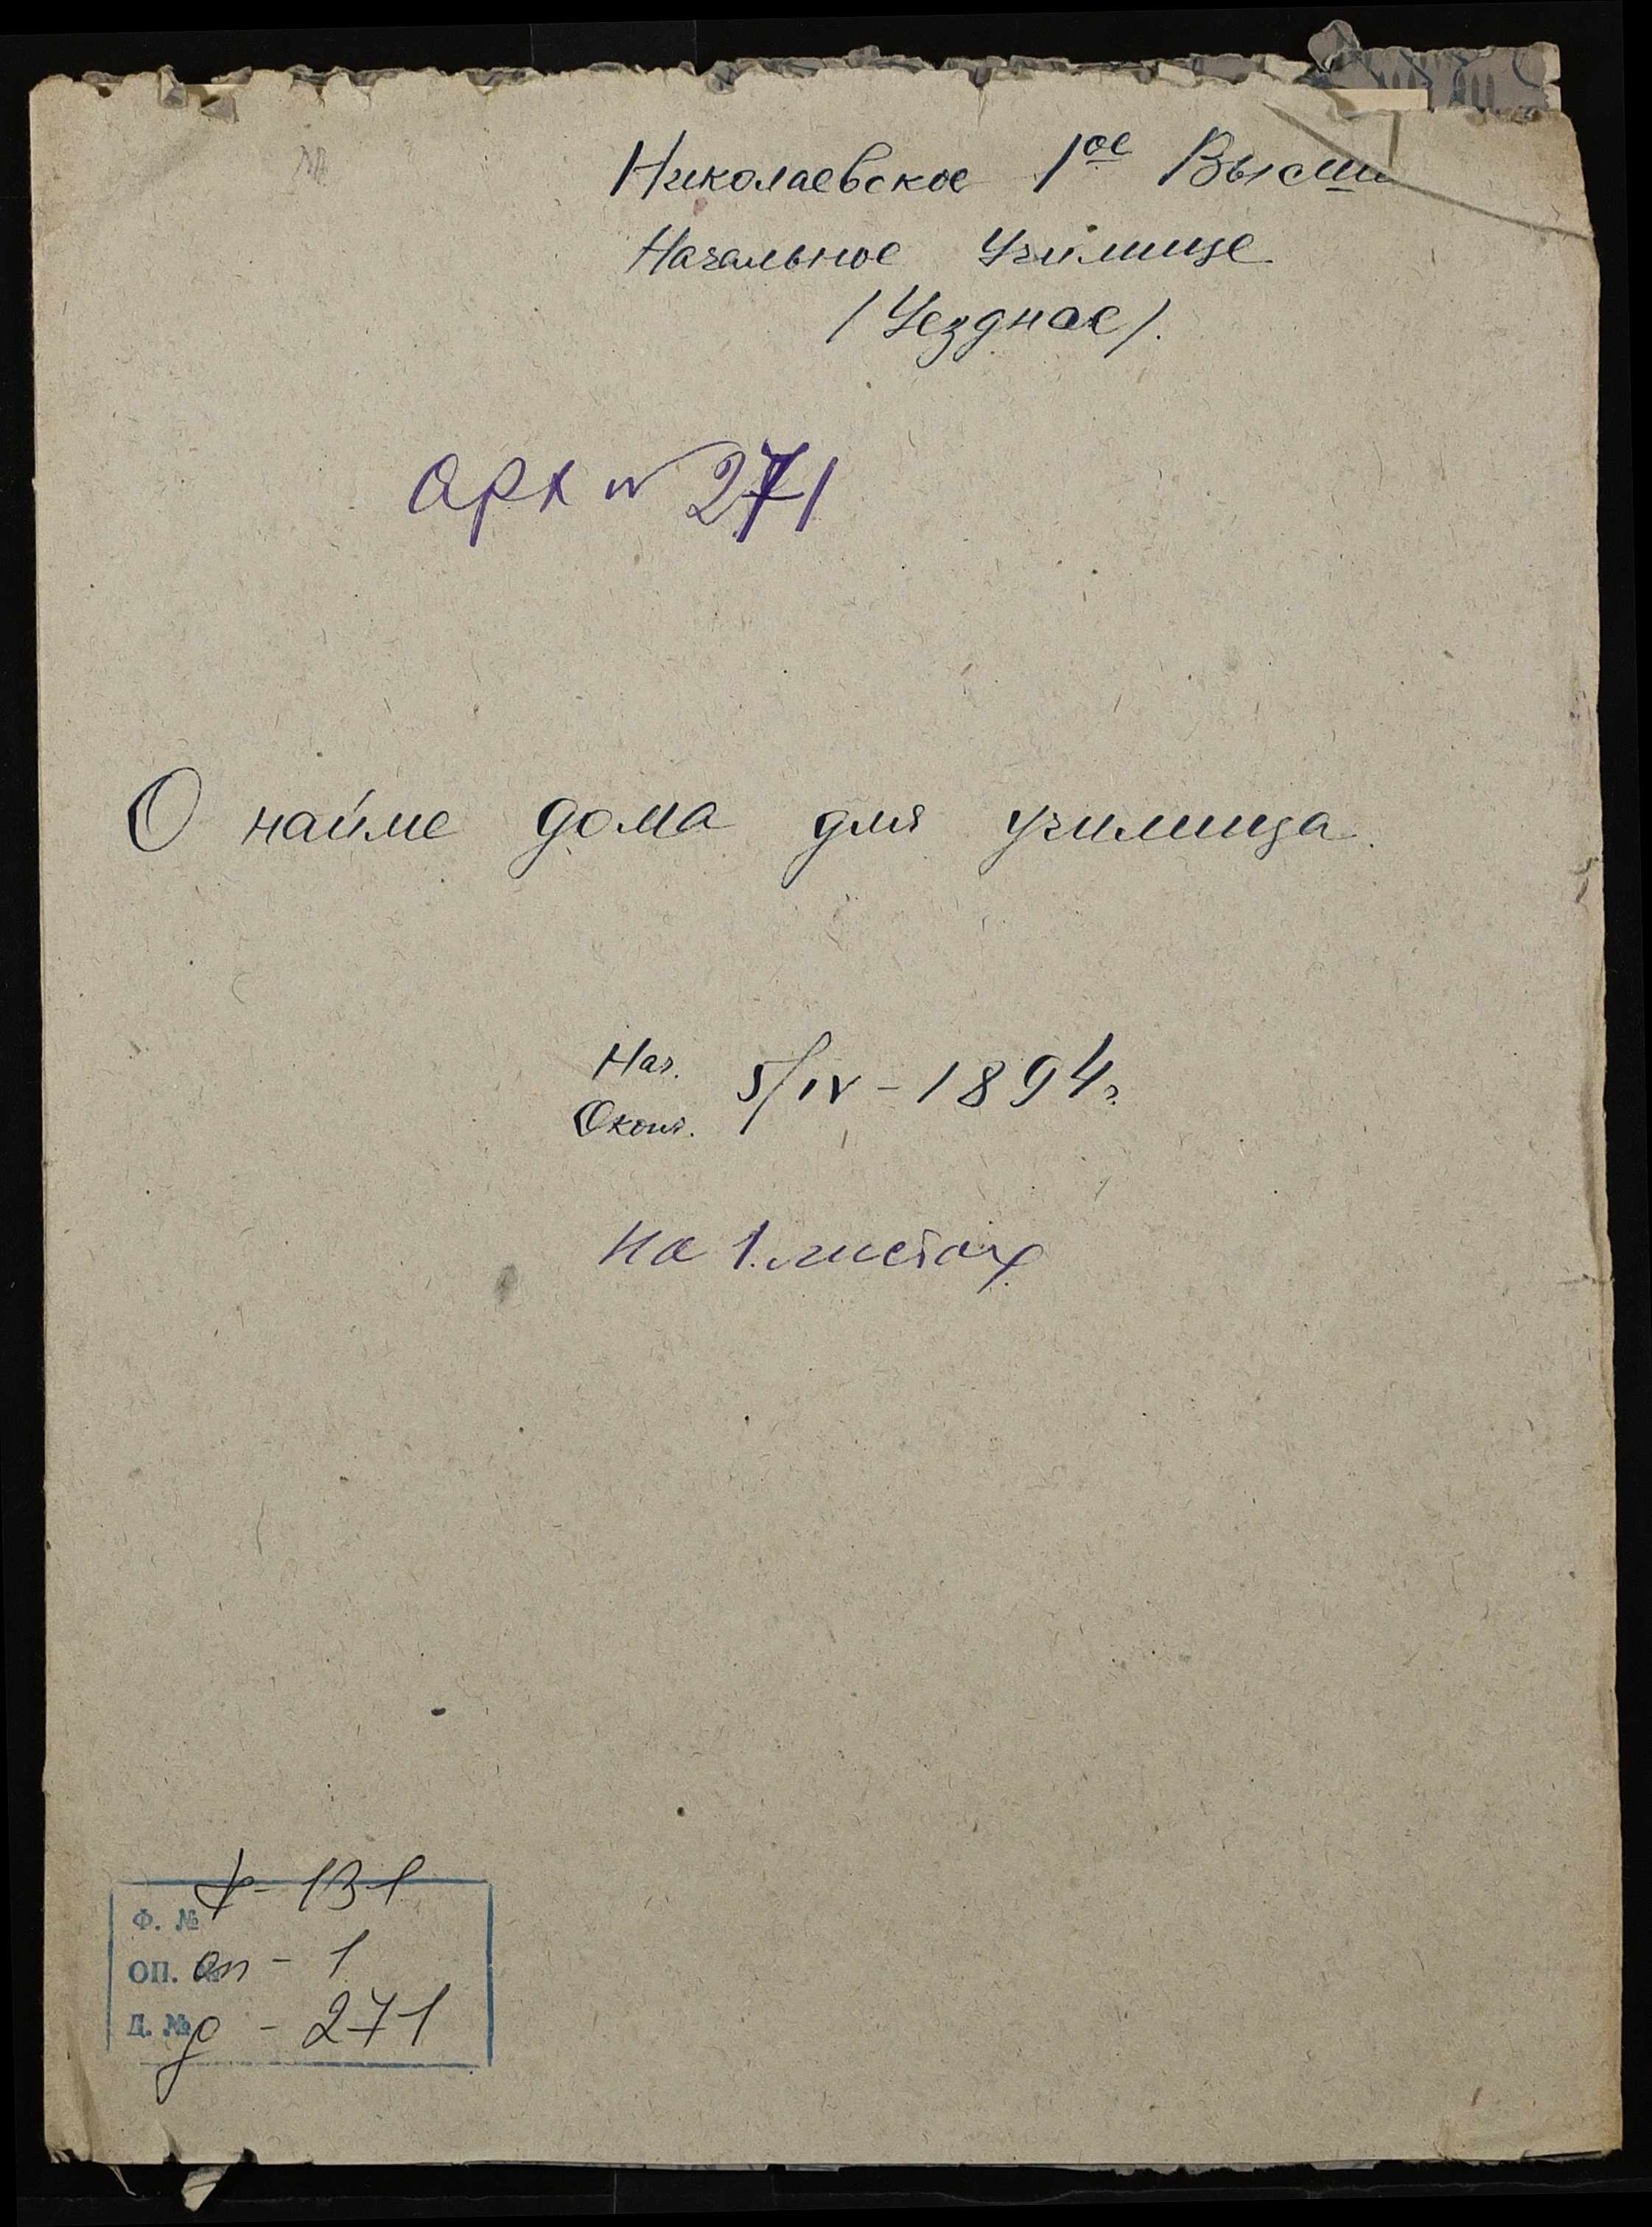 Николаевское 1ое Высш
Начальное Училище
(Уездное).
Арх № 271
О найме дома для училища.
Нач.
Оконч.
5/IV - 1894 г.
на 1 листах
Ф. № ф - 131
ОП. № оп - 1
Д. № д - 271